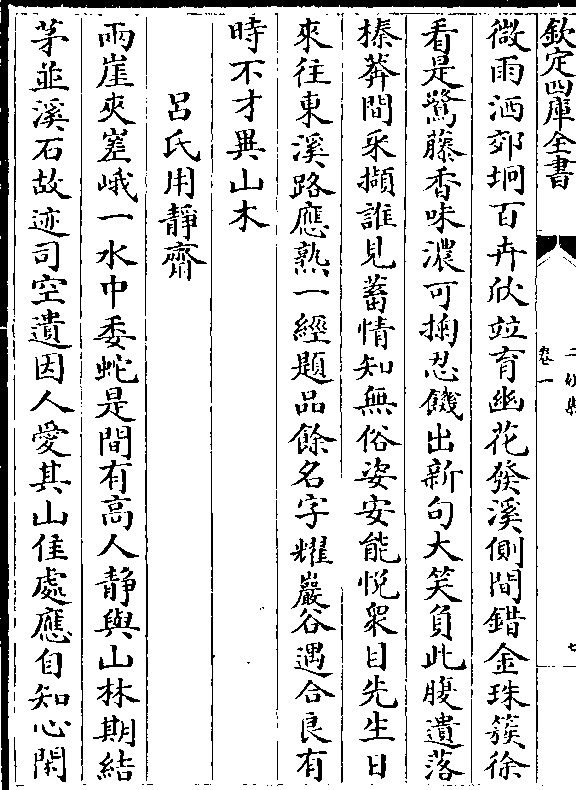 欽定四庫全書
卷一
七
微雨洒郊坰百卉欣竝育幽花發溪側間錯金珠簇徐
看是鷺藤香味濃可掬忍饑出新句大笑負此腹遺落
榛莽間采擷誰見蓄情知無俗姿安能悅衆目先生日
來往東溪路應熟一經題品餘名字耀巖谷遇合良有
時不才異山木
呂氏用靜齋
兩崖夾嵳峨一水中委蛇是間有高人靜與山林期結
茅並溪石故迹司空遺因人愛其山佳處應自知心閑